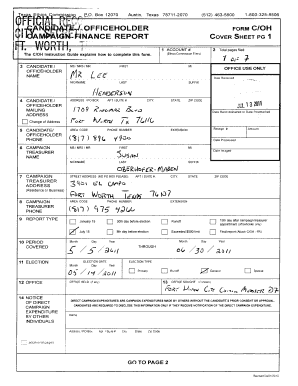 Texas Ethics Commission P.O. Box 12070 Austin, Texas 78711-2070 (512) 463-5800 1-800-325-8506
OFFICIAL REC
CITY
FT. WORTH,
CANDIDATE / OFFICEHOLDER
CAMPAIGN FINANCE REPORT
FORM C/OH
COVER SHEET PG 1
The C/OH Instruction Guide explains how to complete this form.
1 ACCOUNT #
(Ethics Commission Filers)
2 Total pages filed:
1 of 7
3 CANDIDATE / OFFICEHOLDER NAME
MS / MRS / MR FIRST MI
MR LEE
NICKNAME LAST SUFFIX
HENDERSON
OFFICE USE ONLY
Date Received
JUL 13 2011
4 CANDIDATE / OFFICEHOLDER MAILING ADDRESS
Change of Address
ADDRESS / PO BOX; APT / SUITE #; CITY; STATE; ZIP CODE
FORT WORTH TX 76116
Date Hand-delivered or Date Postmarked
5 CANDIDATE / OFFICEHOLDER PHONE
AREA CODE PHONE NUMBER EXTENSION
(817)
Receipt # Amount
Date Processed
6 CAMPAIGN TREASURER NAME
MS / MRS / MR FIRST MI
SUSAN
NICKNAME LAST SUFFIX
Date Imaged
7 CAMPAIGN TREASURER ADDRESS
(Residence or Business)
STREET ADDRESS (NO PO BOX PLEASE); APT / SUITE #; CITY; STATE; ZIP CODE
FORT WORTH TEXAS 76107
8 CAMPAIGN TREASURER PHONE
AREA CODE PHONE NUMBER EXTENSION
(817)
9 REPORT TYPE
January 15 30th day before election Runoff 15th day after campaign treasurer appointment (officeholder only)
July 15 8th day before election Exceeded $500 limit Final report (Attach C/OH - FR)
10 PERIOD COVERED
Month Day Year THROUGH Month Day Year
5 / 5 / 2011 06 / 30 / 2011
11 ELECTION
ELECTION DATE ELECTION TYPE
Month Day Year
05 / 14 / 2011
Primary Runoff General Special
12 OFFICE
OFFICE HELD (if any)
13 OFFICE SOUGHT (if known)
FORT WORTH CITY COUNCIL MEMBER D7
14 NOTICE OF DIRECT CAMPAIGN EXPENDITURE BY OTHER INDIVIDUALS
DIRECT CAMPAIGN EXPENDITURES ARE CAMPAIGN EXPENDITURES MADE BY OTHERS WITHOUT THE CANDIDATE'S PRIOR CONSENT OR APPROVAL.
CANDIDATES ARE REQUIRED TO DISCLOSE THIS INFORMATION ONLY IF THEY RECEIVE NOTIFICATION OF THE DIRECT CAMPAIGN EXPENDITURE.
Name
GO TO PAGE 2